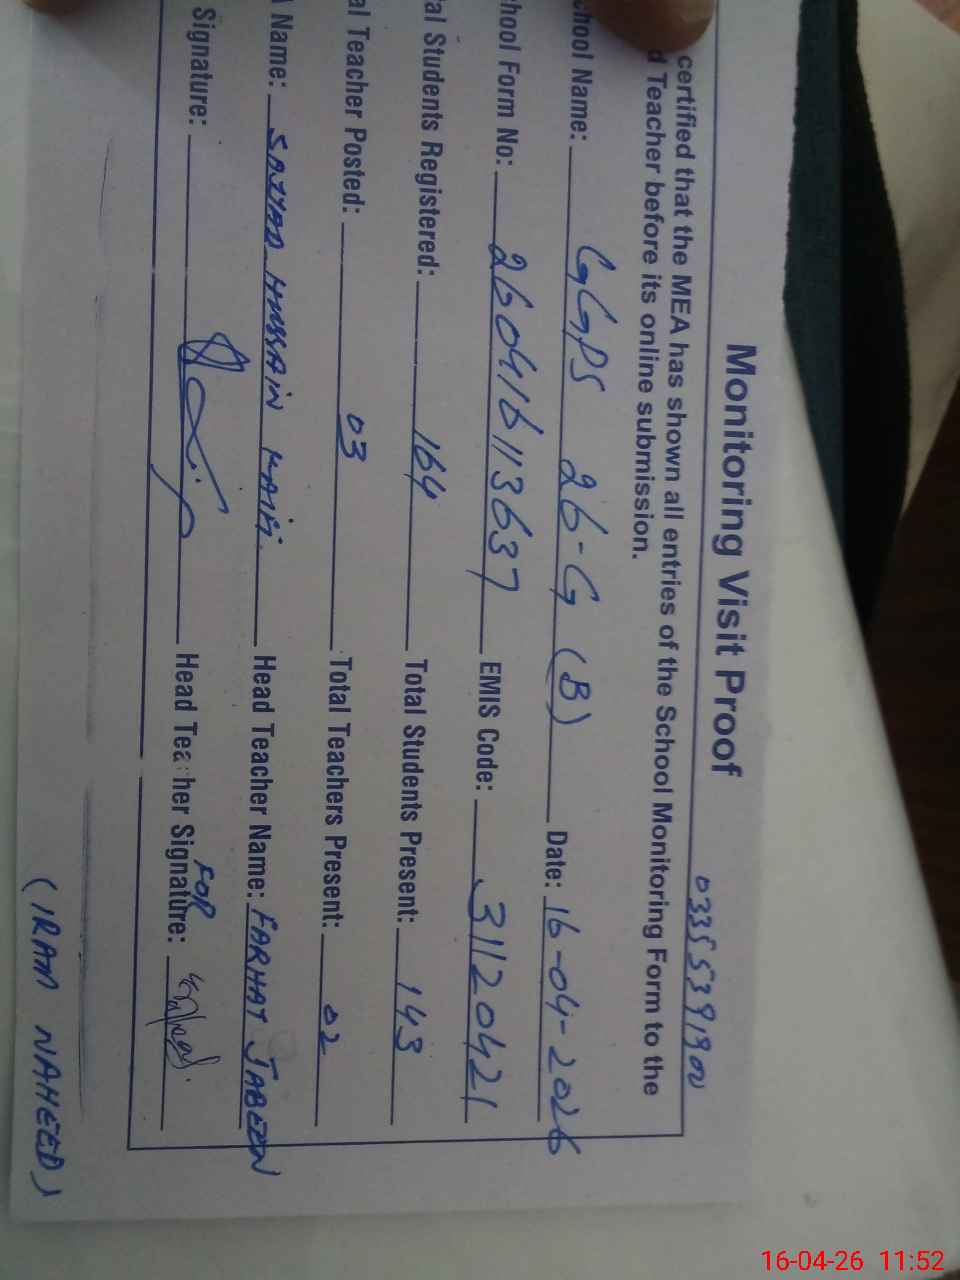 Monitoring Visit Proof
03355391900
certified that the MEA has shown all entries of the School Monitoring Form to the
d Teacher before its online submission.
chool Name: GGPS 26-G (B) Date: 16-04-2026
chool Form No: 260416113637 EMIS Code: 31120421
tal Students Registered: 164 Total Students Present: 143
al Teacher Posted: 03 Total Teachers Present: 02
Name: SAJJAD HUSSAIN Head Teacher Name: FARHAT JABEEN
Signature: Head Teacher Signature: FOR
(IRAM NAHEED)
16-04-26 11:52